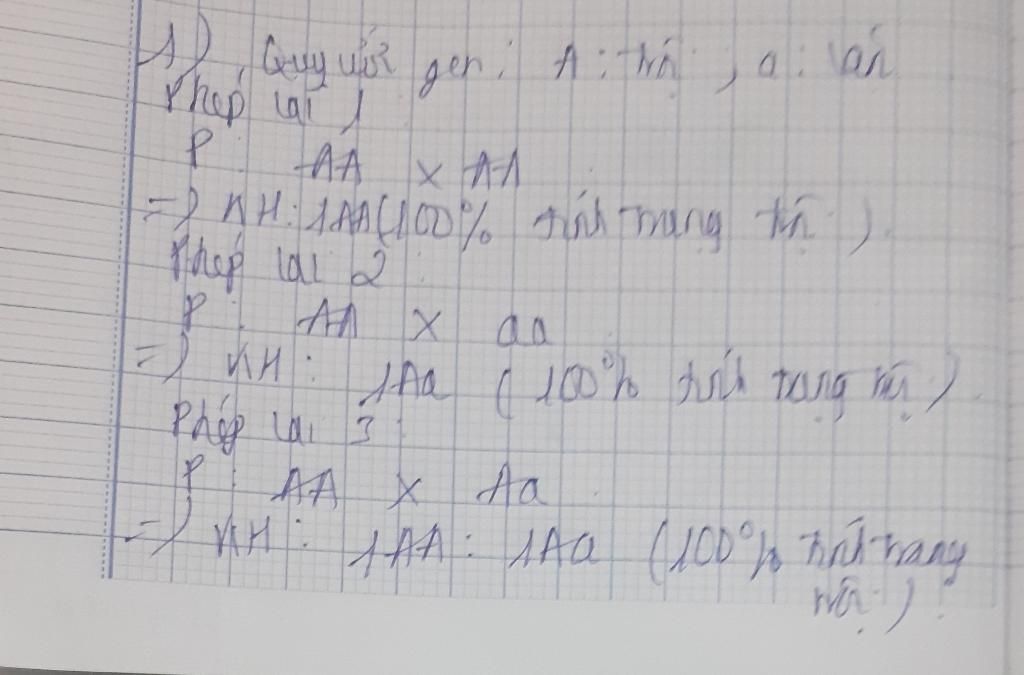 1) Quy ước gen: A: trội, a: lặn
Phép lai 1
P: AA x AA
=) KH: 1AA (100% tính trạng trội)
Phép lai 2:
P: AA x aa
=) KH: 1Aa (100% tính trạng trội)
Phép lai 3:
P: AA x Aa
=) KH: 1AA: 1Aa (100% tính trạng
trội)